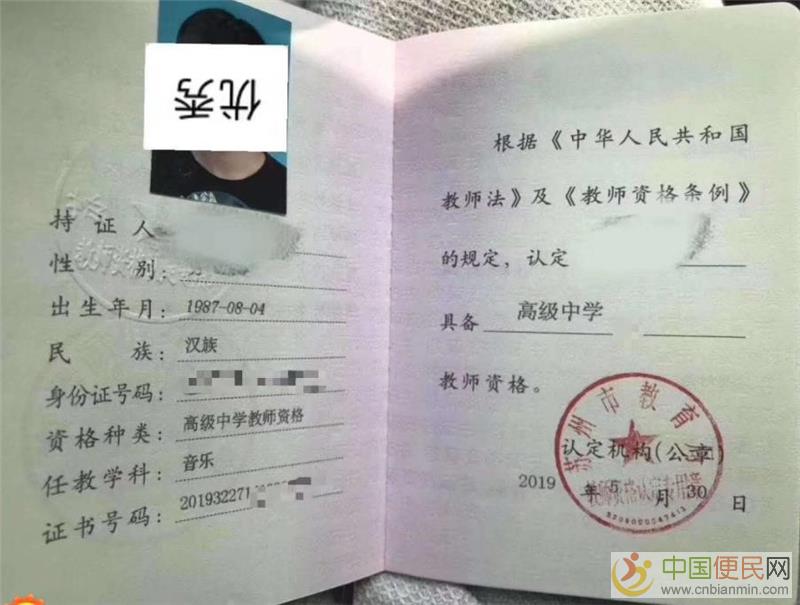 优秀
持证人
性别:
出生年月: 1987-08-04
民族: 汉族
身份证号码:
资格种类: 高级中学教师资格
任教学科: 音乐
证书号码: 201932271
根据《中华人民共和国
教师法》及《教师资格条例》
的规定，认定
具备 高级中学
教师资格。
苏州市教育局
认定机构(公章)
教师资格认定专用章
2019 年 5 月 30 日
中国便民网
www.cnbianmin.com